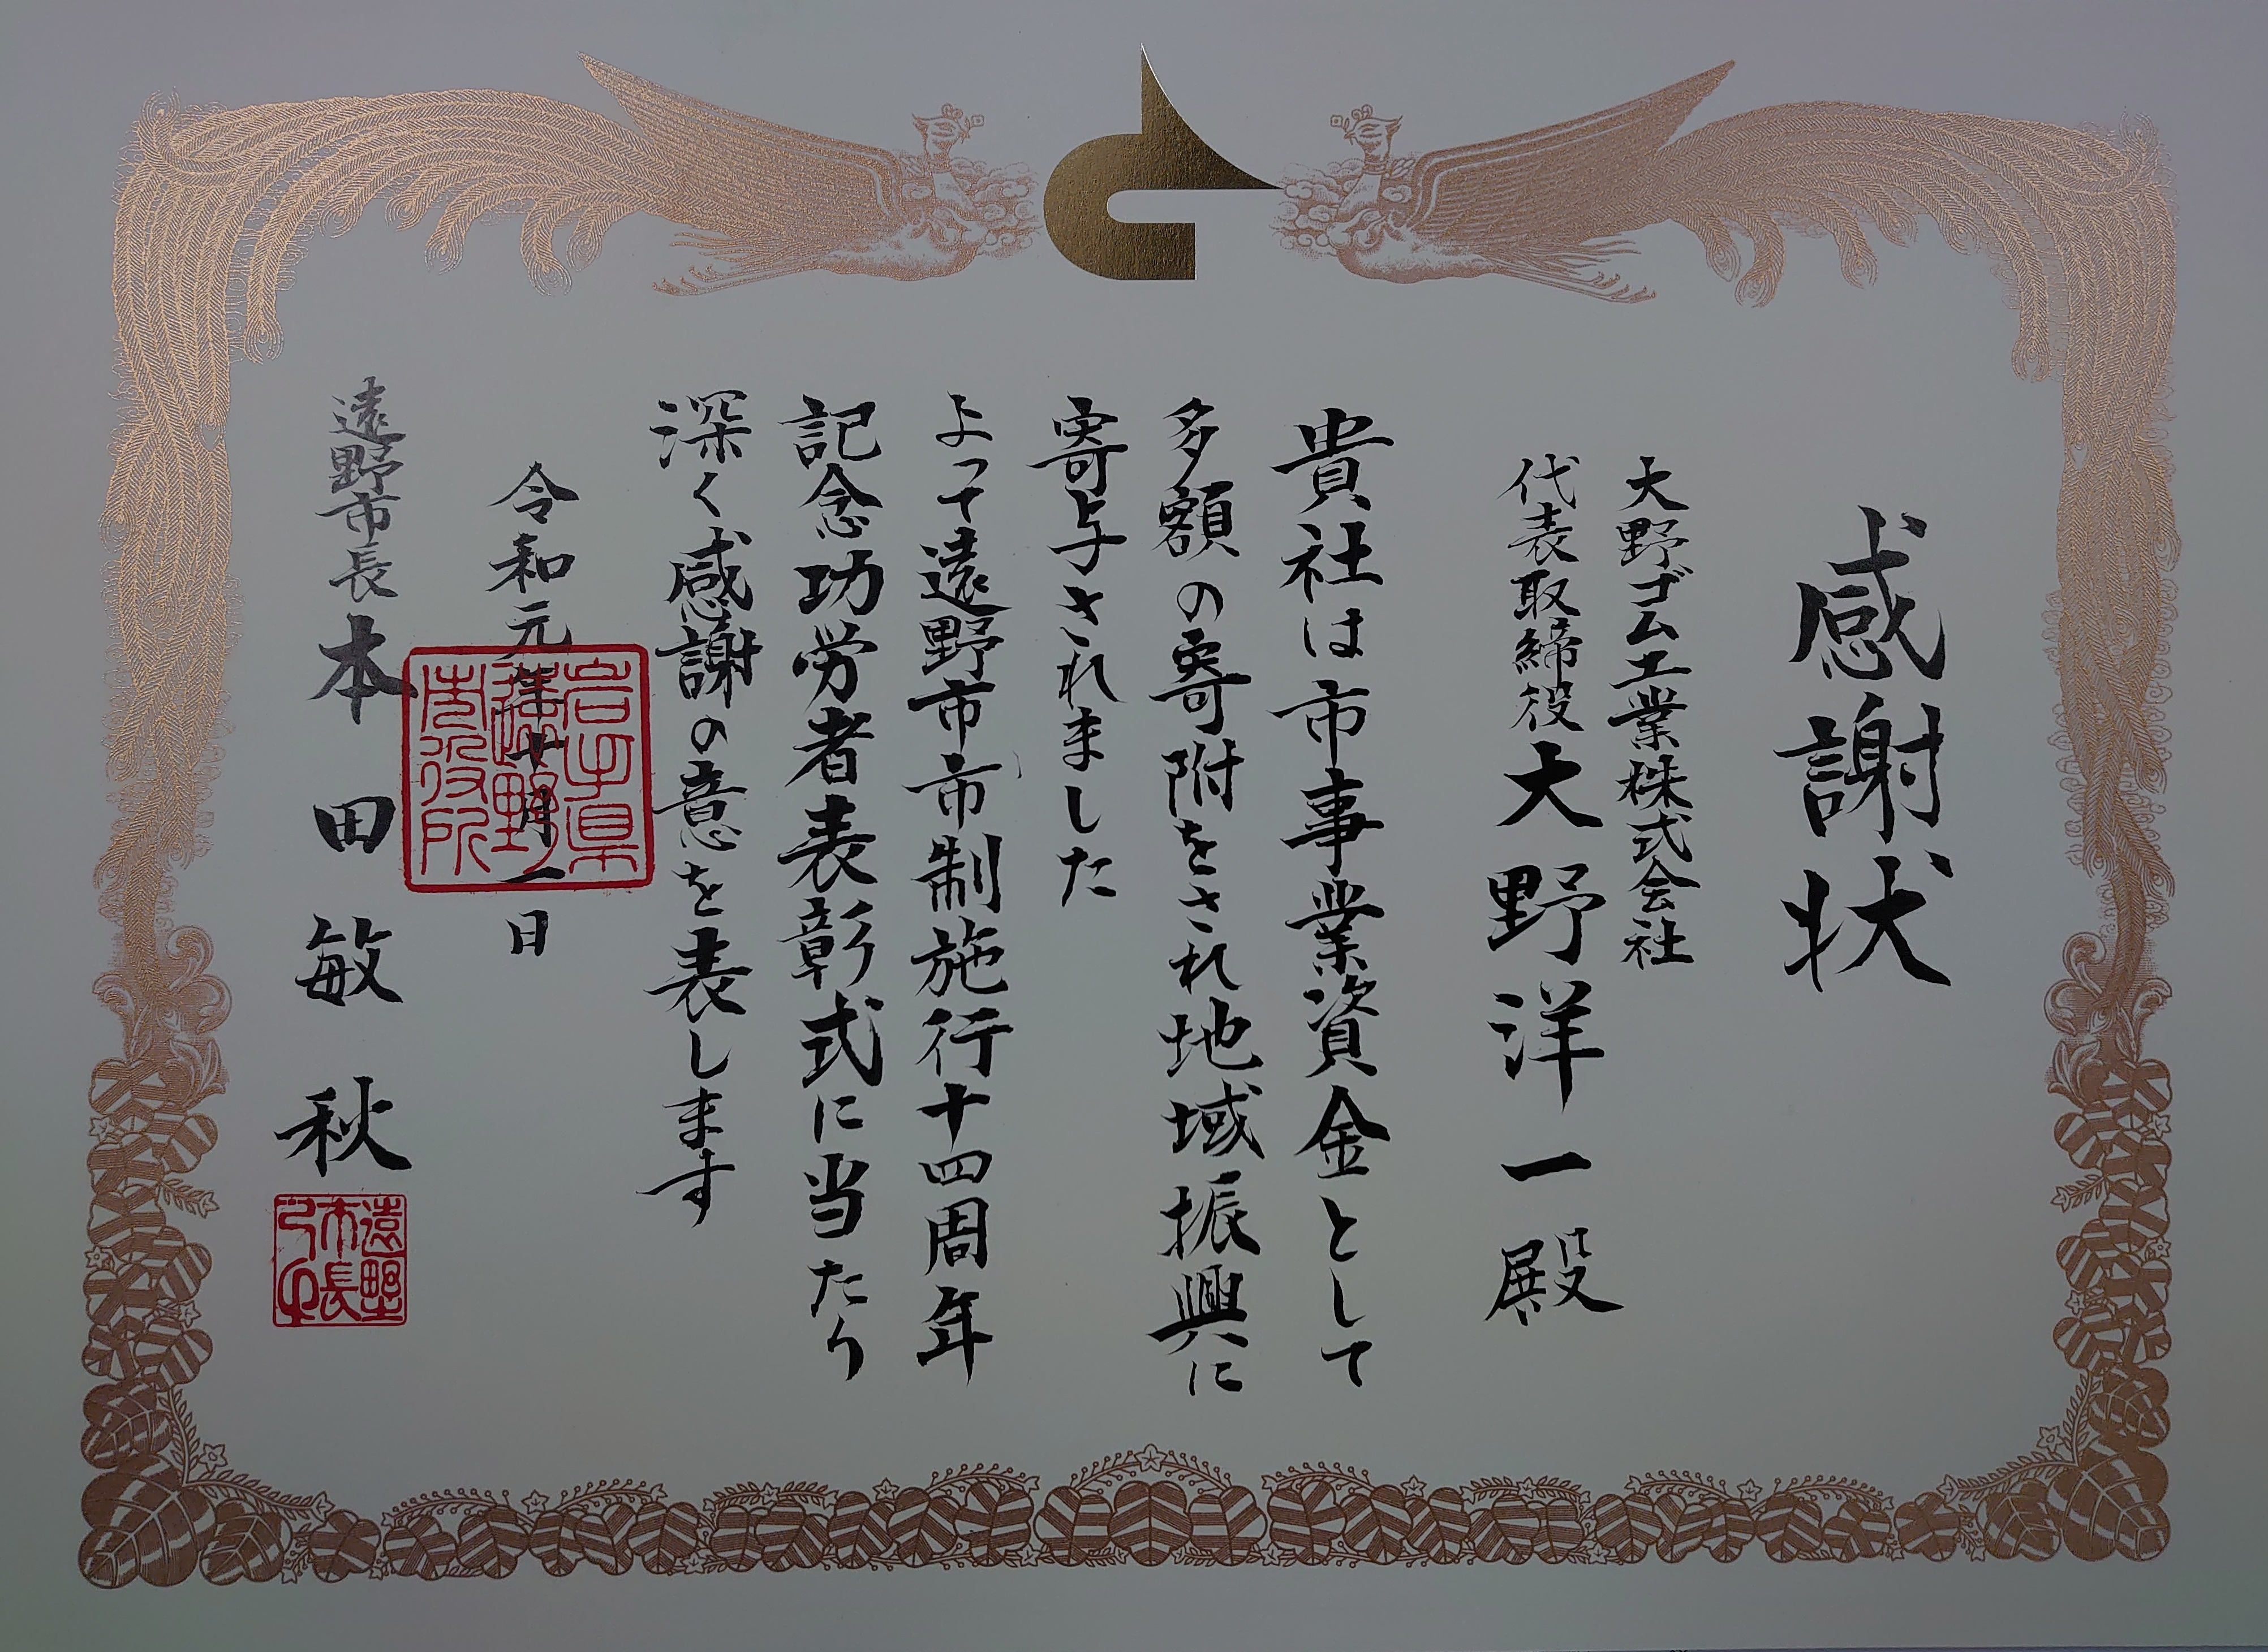 感謝状
大野ゴム工業株式会社
代表取締役 大野洋一殿
貴社は市事業資金として
多額の寄附をされ地域振興に
寄与されました
よって遠野市市制施行十四周年
記念功労者表彰式に当たり
深く感謝の意を表します
令和元年十月一日
岩手県遠野市役所
遠野市長 本田敏秋
遠野市長之印